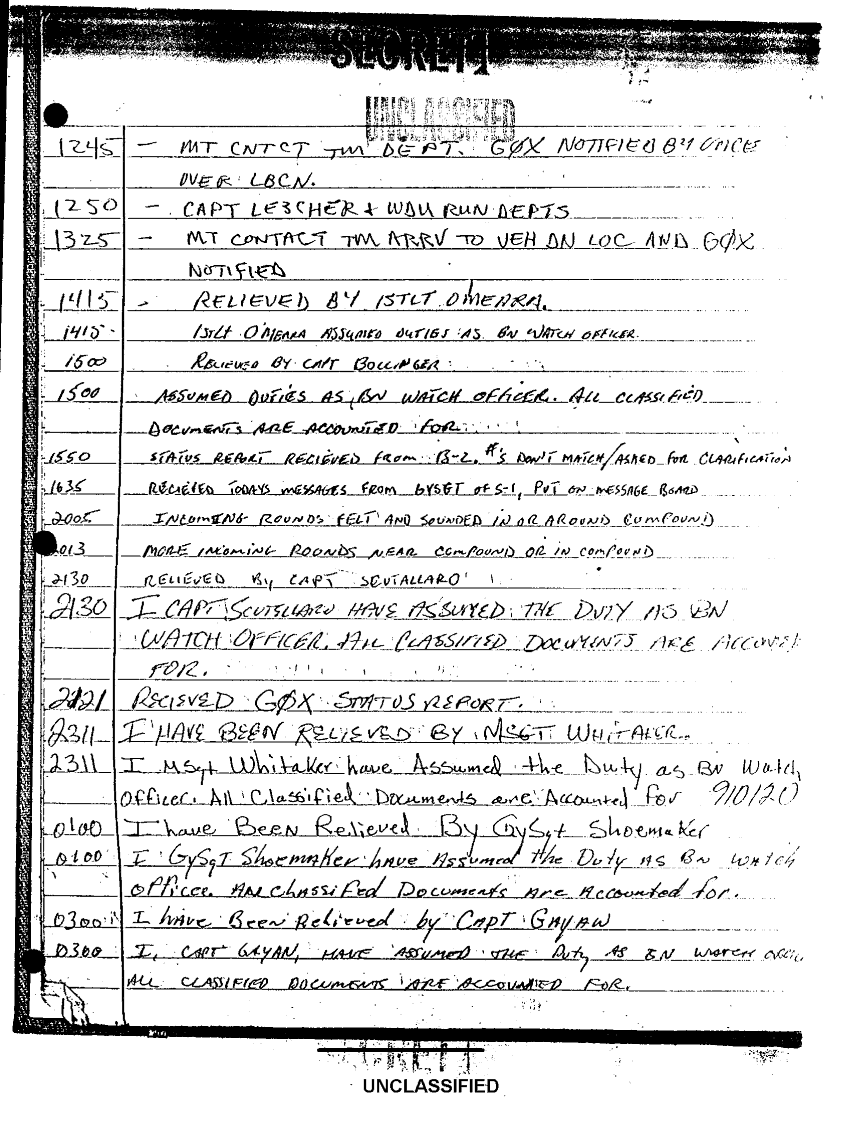 SECRET
UNCLASSIFIED
1245 - MT CNTCT TM DEPT. GØX NOTIFIED BY
OVER LBCN.
1250 - CAPT LESCHER + WDU RUN DEPTS
1325 - MT CONTACT TM ARRV TO VEH DN LOC AND GØX
NOTIFIED
1415 - RELIEVED BY 1STLT O'MEARA.
1415 - 1STLT O'MEARA ASSUMED DUTIES AS BN WATCH OFFICER.
1500 RELIEVED BY CAPT BOLLINGER
1500 ASSUMED DUTIES AS BN WATCH OFFICER. ALL CLASSIFIED
DOCUMENTS ARE ACCOUNTED FOR
1550 STATUS REPORT RECIEVED FROM B-2. #'S DON'T MATCH/ASKED FOR CLARIFICATION
1635 RECIEVED TODAYS MESSAGES FROM GYSGT OF S-1, PUT ON MESSAGE BOARD
2005 INCOMING ROUNDS FELT AND SOUNDED IN OR AROUND COMPOUND
2013 MORE INCOMING ROUNDS NEAR COMPOUND OR IN COMPOUND
2130 RELIEVED BY CAPT SCUTALLARO
2130 I CAPT SCUTELLARO HAVE ASSUMED THE DUTY AS BN
WATCH OFFICER. ALL CLASSIFIED DOCUMENTS ARE ACCOUNTE
FOR.
2221 RECIEVED GØX STATUS REPORT.
2311 I HAVE BEEN RELIEVED BY MSGT WHITAKER.
2311 I MSgt Whitaker have Assumed the Duty as BN Watch
Officer. All Classified Documents are Accounted for 910120
0100 I have Been Relieved By GySgt Shoemaker
0100 I GySgT Shoemaker have Assumed the Duty AS BN WATCH
officer. All Classified Documents Are Accounted for.
0300 I have Been Relieved by CAPT GAYAN
0300 I, CAPT GAYAN, HAVE ASSUMED THE Duty AS BN WATCH
ALL CLASSIFIED DOCUMENTS ARE ACCOUNTED FOR.
SECRET
UNCLASSIFIED